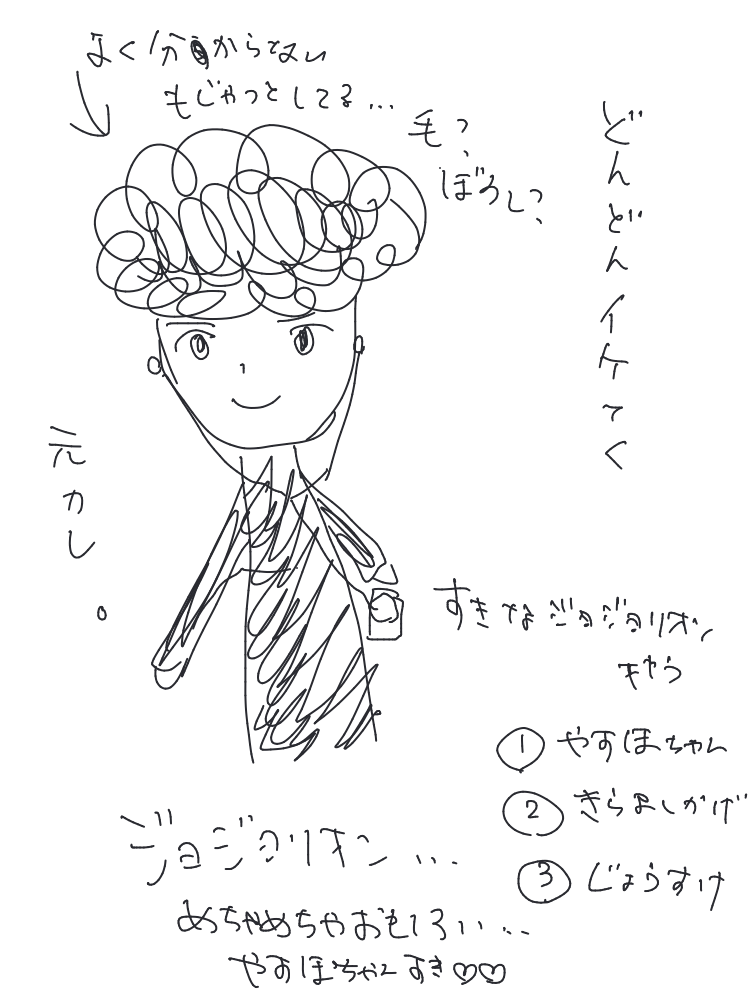 よく分からない
もじゃっとしてる…
毛?
ぼうし?
どんどんイケてく
元カレ。
すきなジョジョリオン
キャラ
① やすほちゃん
② きらよしかげ
③ じょうすけ
ジョジョリオン…
めちゃめちゃおもしろい…
やすほちゃんすき♡♡